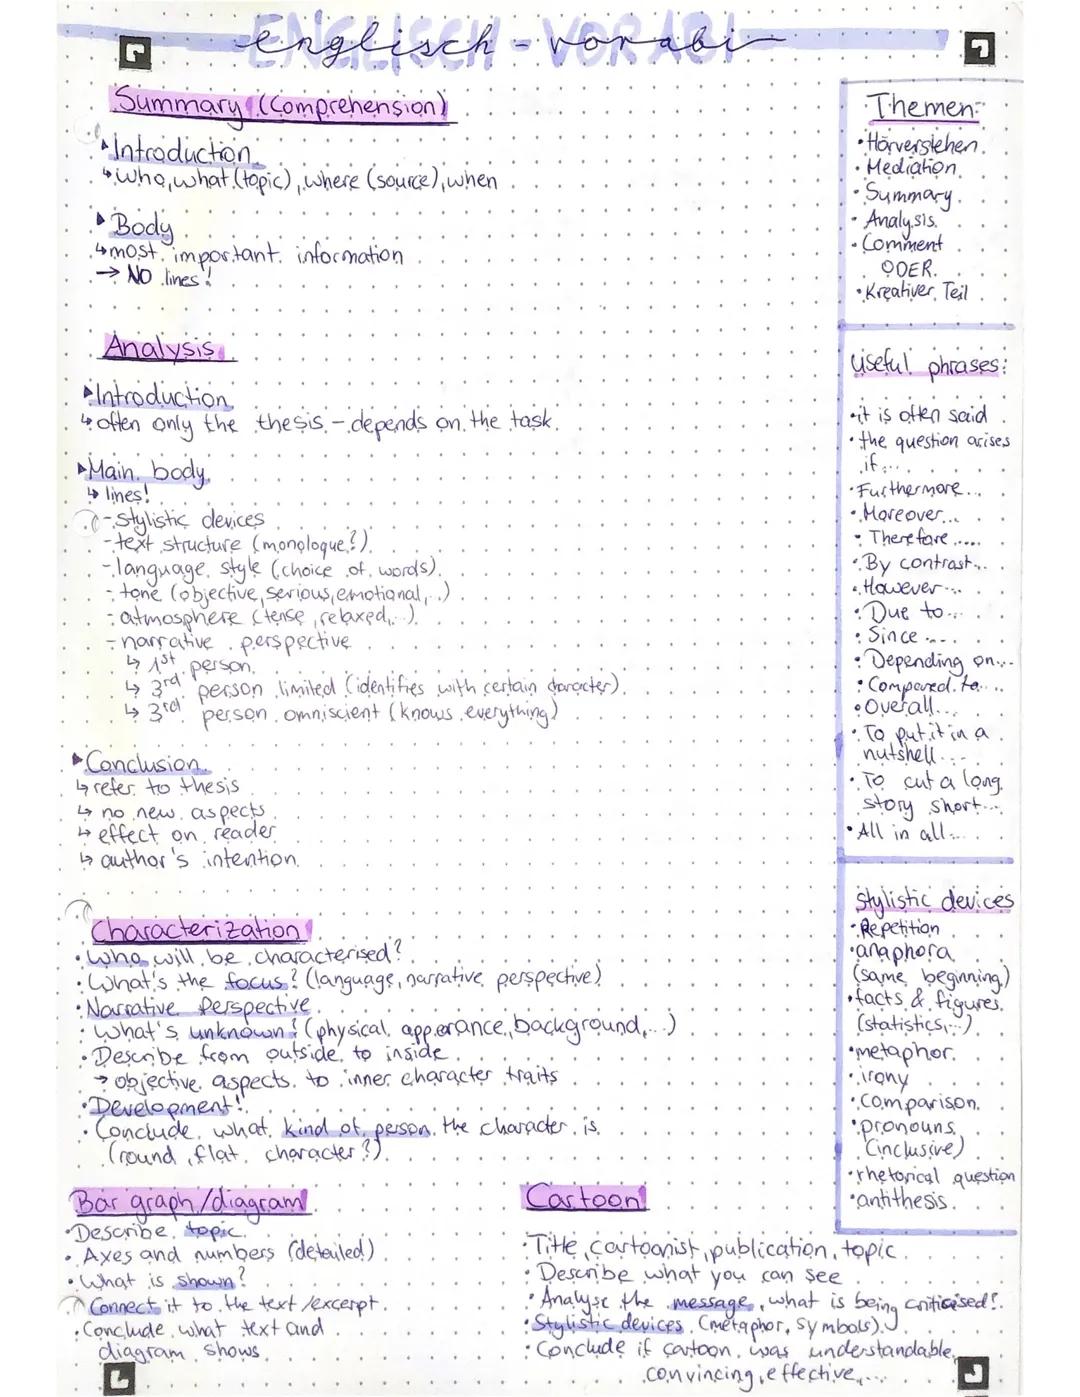 englisch - vorabi
Summary (Comprehension)
Introduction
↳ who, what (topic), where (source), when
Body
↳ most important information
→ NO lines!
Analysis
Introduction
↳ often only the thesis - depends on the task
Main body
↳ lines!
- stylistic devices
- text structure (monologue?)
- language style (choice of words)
- tone (objective, serious, emotional,..)
- atmosphere (tense, relaxed,..)
- narrative perspective
↳ 1st person
↳ 3rd person limited (identifies with certain character)
↳ 3rd person omniscient (knows everything)
Conclusion
↳ refer to thesis
↳ no new aspects
↳ effect on reader
↳ author's intention
Characterization
• Who will be characterised?
• What's the focus? (language, narrative perspective)
• Narrative Perspective
• What's unknown? (physical apperance, background,...)
• Describe from outside to inside
→ objective aspects to inner character traits
• Development!
• Conclude what kind of person the character is
(round, flat character?)
Bar graph/diagram
• Describe topic
• Axes and numbers (detailed)
• What is shown?
• Connect it to the text/excerpt
• Conclude what text and
diagram shows
Cartoon
• Title, cartoonist, publication, topic
• Describe what you can see
• Analyse the message, what is being criticised?
• Stylistic devices (metaphor, symbols)
• Conclude if cartoon was understandable,
convincing, effective,...
Themen:
• Hörverstehen
• Mediation
• Summary
• Analysis
• Comment
ODER
• Kreativer Teil
useful phrases:
• it is often said
• the question arises
if...
• Furthermore...
• Moreover...
• Therefore....
• By contrast...
• However...
• Due to...
• Since....
• Depending on...
• Compared to....
• Overall...
• To put it in a
nutshell....
• To cut a long
story short...
• All in all...
stylistic devices
• Repetition
• anaphora
(same beginning)
• facts & figures
(statistics,..)
• metaphor
• irony
• comparison
• pronouns
(inclusive)
• rhetorical question
• antithesis